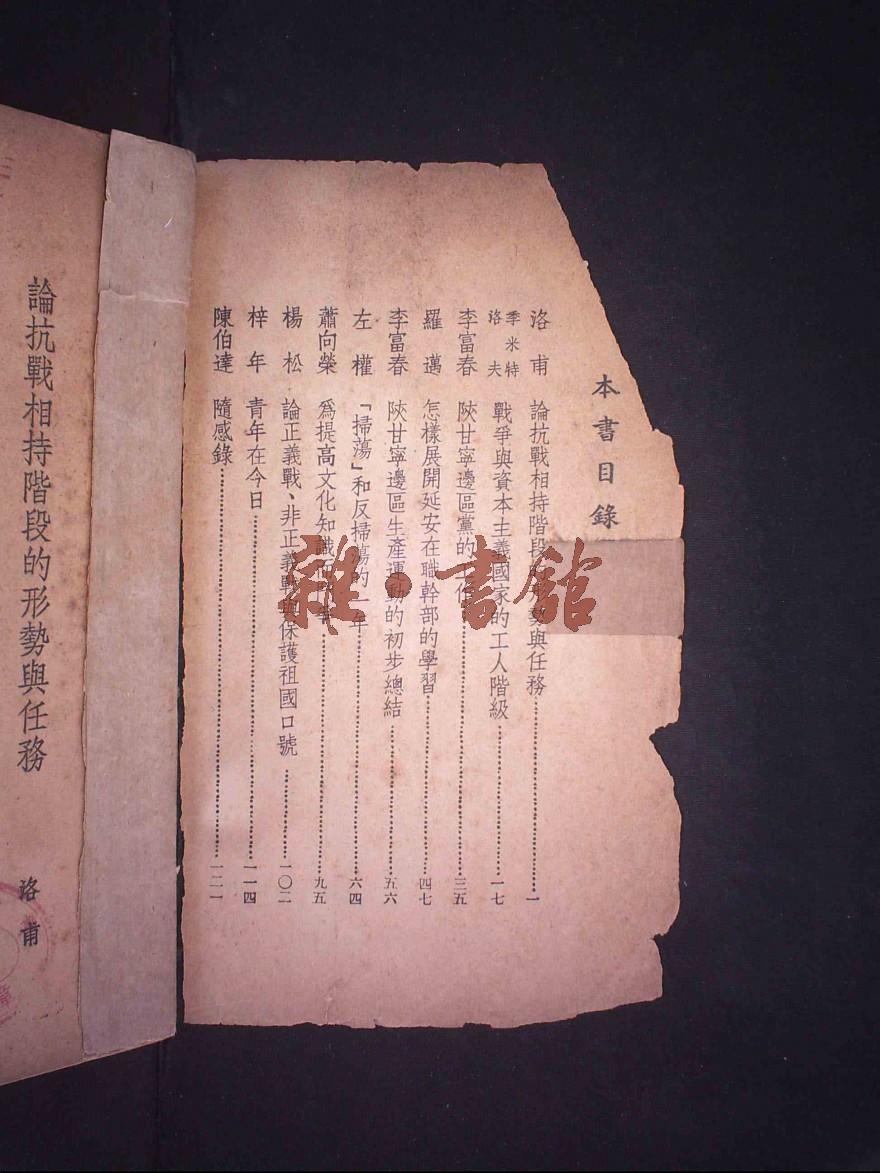 本書目錄
洛甫 論抗戰相持階段的形勢與任務……一
季米特洛夫 戰爭與資本主義國家的工人階級……一七
李富春 陝甘寧邊區黨的工作……三五
羅邁 怎樣展開延安在職幹部的學習……四七
李富春 陝甘寧邊區生產運動的初步總結……五六
左權 「掃蕩」和反掃蕩的一年……六四
蕭向榮 爲提高文化知識而鬥爭……九五
楊松 論正義戰、非正義戰與保護祖國口號……一〇二
梓年 青年在今日……一一四
陳伯達 隨感錄……一二一
論抗戰相持階段的形勢與任務
洛甫
雜·書館